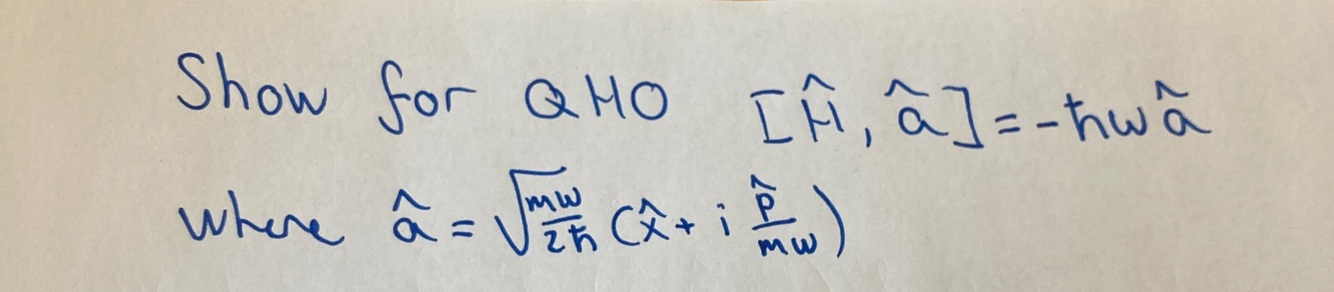 Show for QHO [Ĥ, â] = -ħωâ
where â = √(mω/2ħ) (x̂ + i p̂/mω)